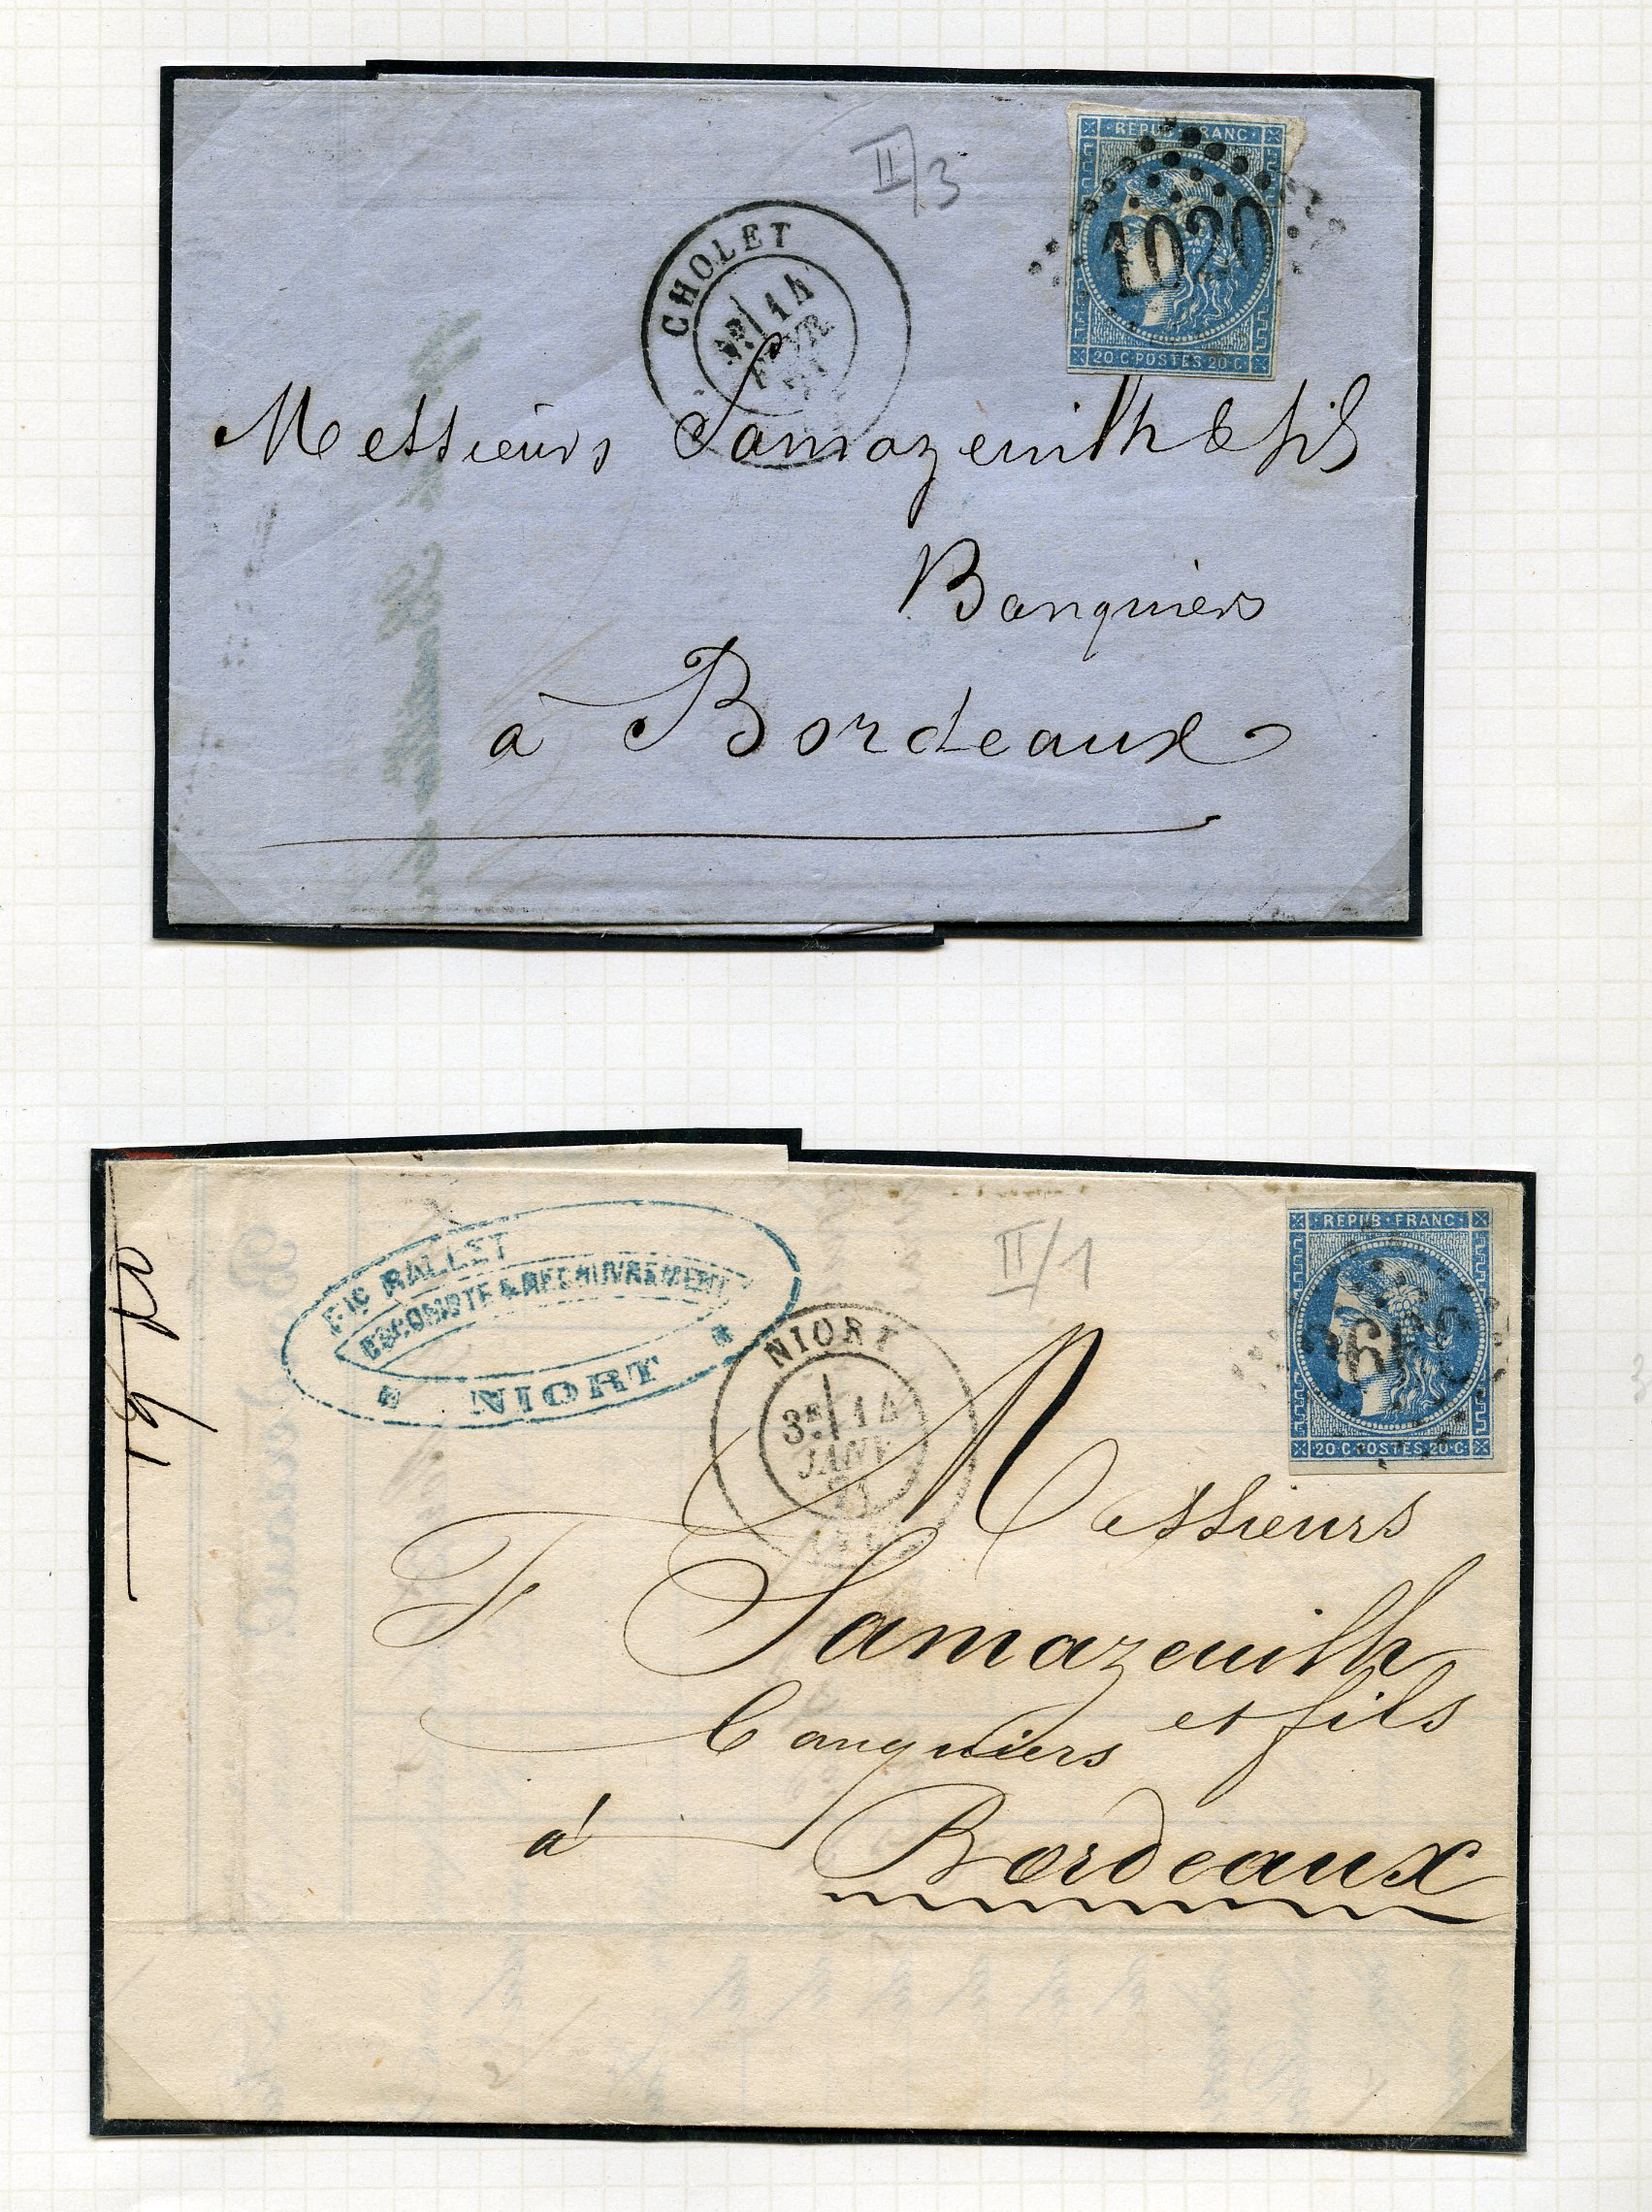 II/3
REPUB · FRANC ·
1020
20 · C · POSTES · 20 · C ·
CHOLET
14
FEVR.
71
Messieurs Samazeuilh & fils
Banquiers
à Bordeaux
REPUB · FRANC ·
20 · C · POSTES · 20 · C ·
II/1
Fic BALLET
ESCOMPTE & RECOUVREMENT
NIORT
NIORT
3E 14
JANV.
71
Messieurs
F Samazeuilh
et fils
banquiers
à Bordeaux